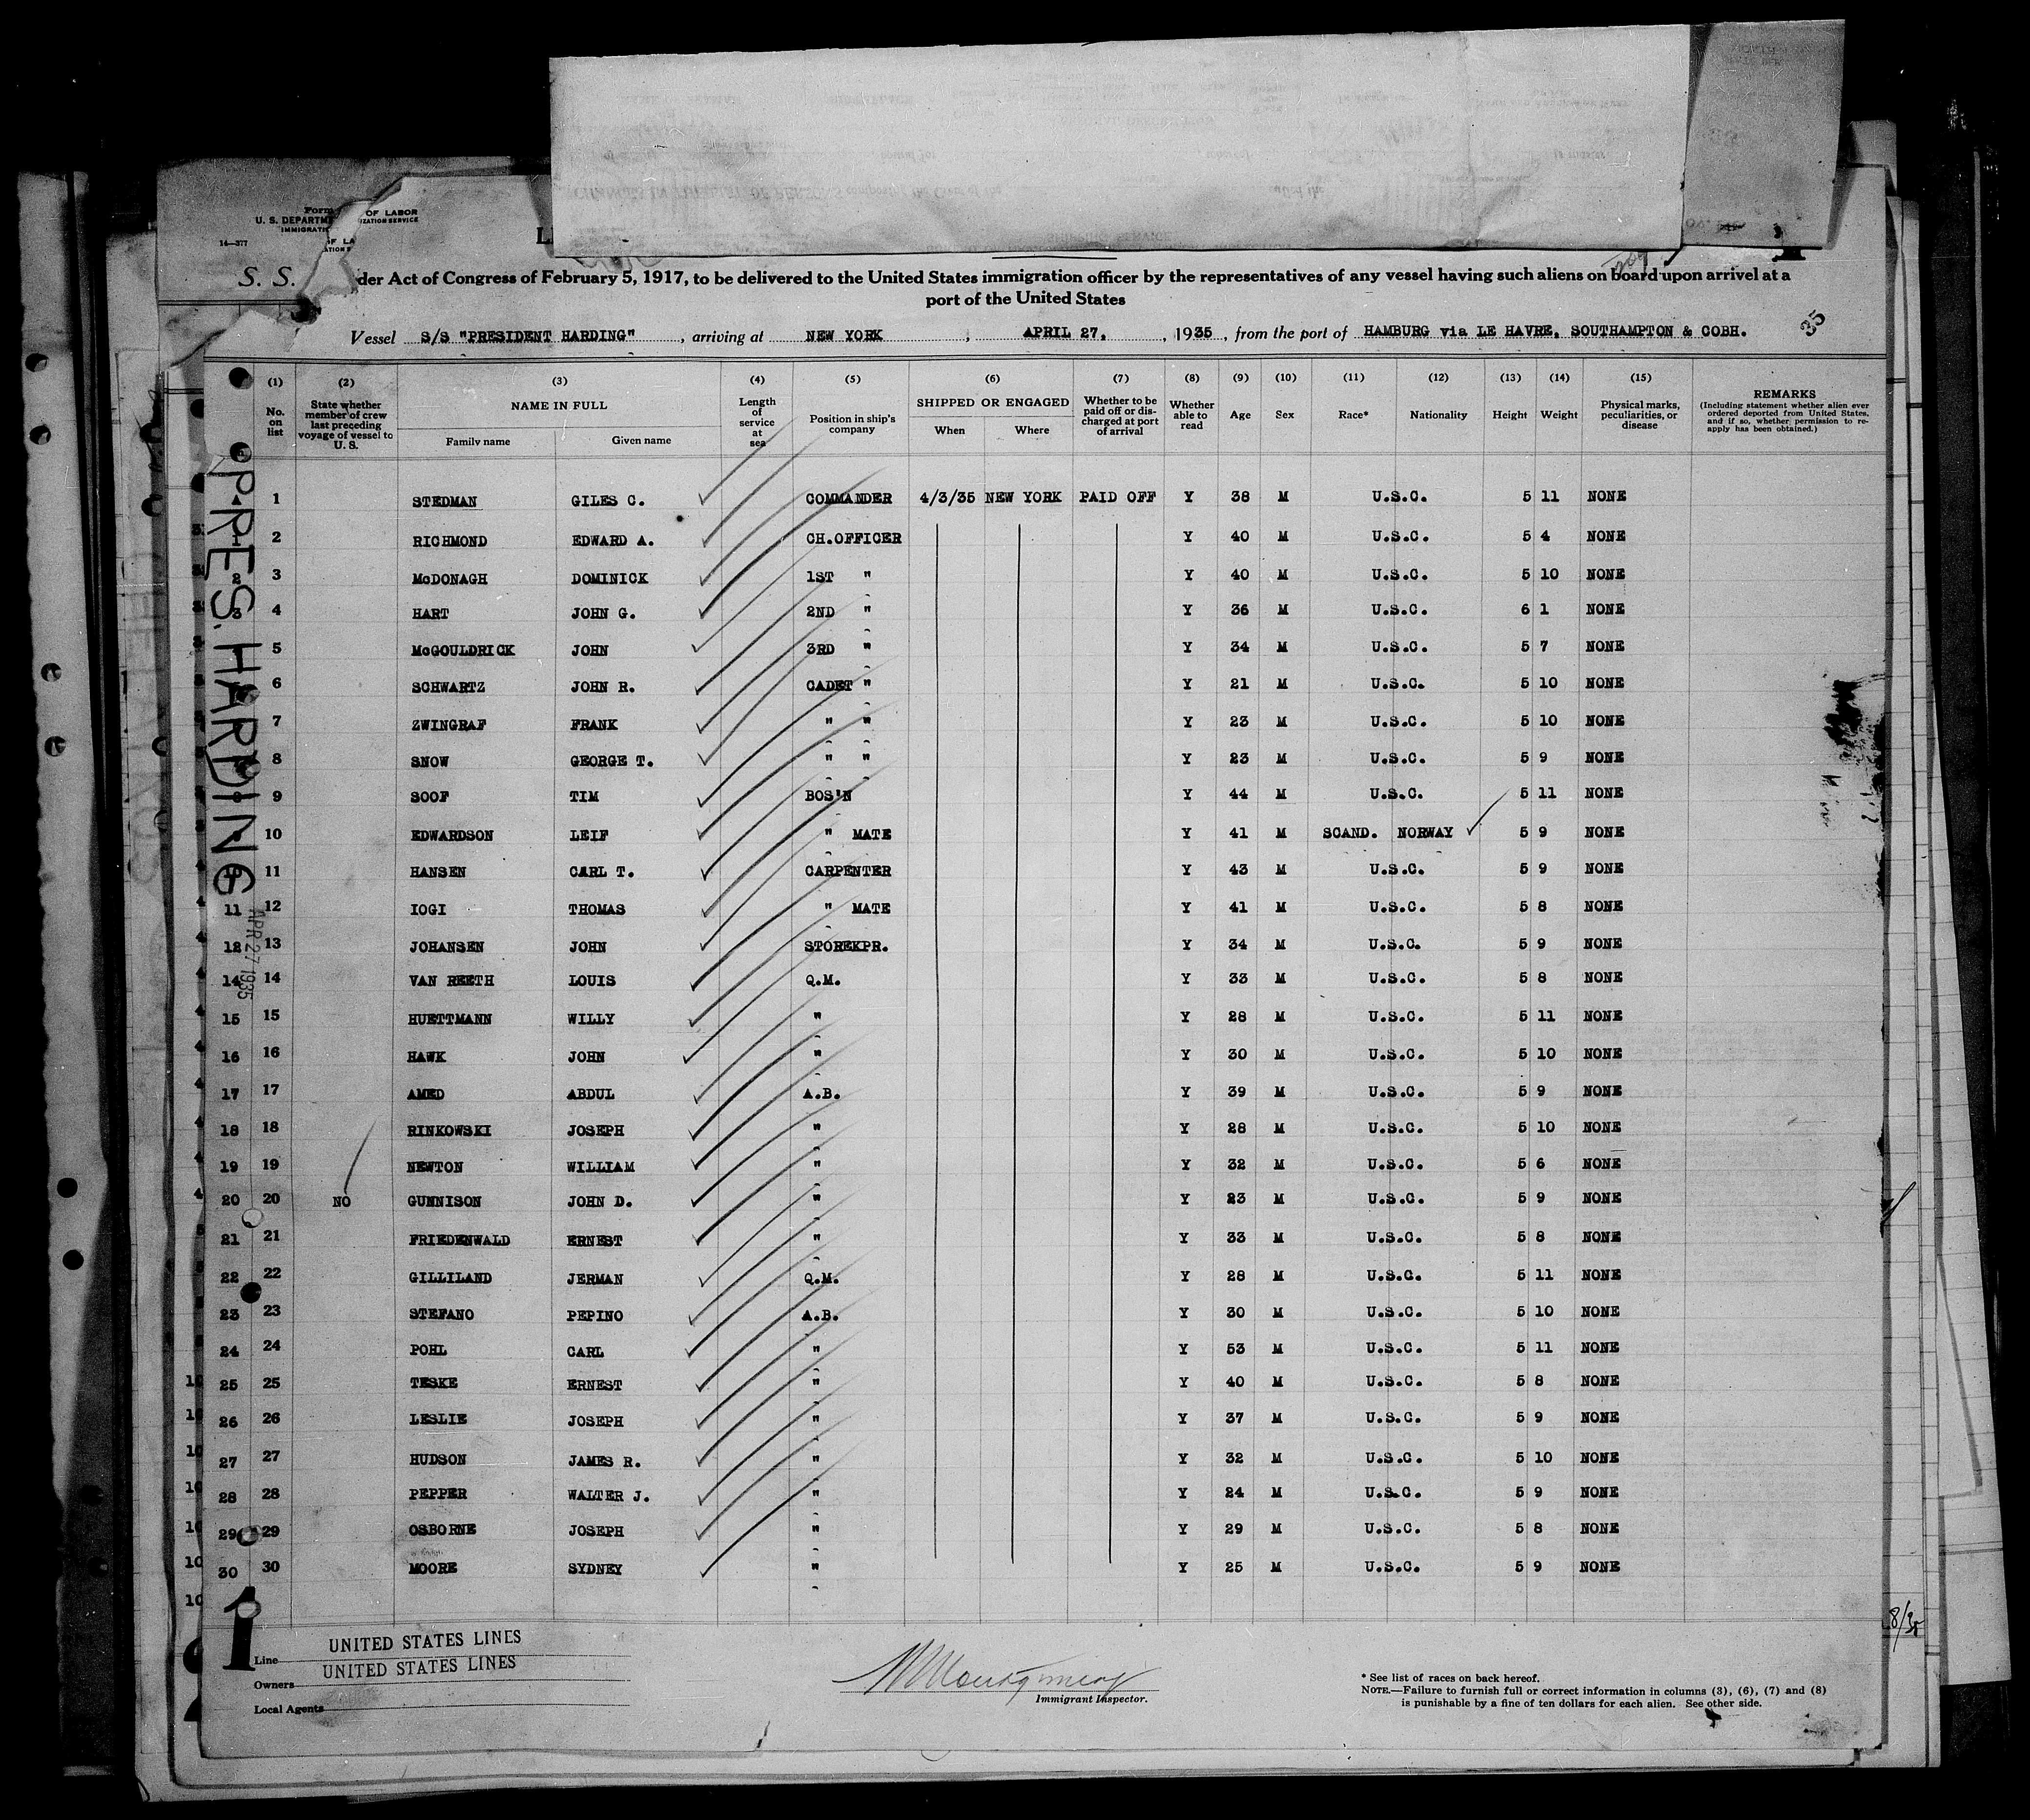 Form
U. S. DEPARTM
IMMIGRATI
OF LABOR
IZATION SERVICE
14—377
S. S.
der Act of Congress of February 5, 1917, to be delivered to the United States immigration officer by the representatives of any vessel having such aliens on board upon arrival at a
port of the United States
Vessel S/S "PRESIDENT HARDING", arriving at NEW YORK, APRIL 27, 1935, from the port of HAMBURG via LE HAVRE, SOUTHAMPTON & COBH.
35
PRES. HARDING
APR 27 1935
(1) (2) (3) (4) (5) (6) (7) (8) (9) (10) (11) (12) (13) (14) (15)
No. on list
State whether member of crew last preceding voyage of vessel to U. S.
NAME IN FULL
Family name Given name
Length of service at sea
Position in ship's company
SHIPPED OR ENGAGED
When Where
Whether to be paid off or discharged at port of arrival
Whether able to read
Age Sex Race* Nationality Height Weight
Physical marks, peculiarities, or disease
REMARKS
(Including statement whether alien ever ordered deported from United States, and if so, whether permission to re-apply has been obtained.)
1 STEDMAN GILES C. COMMANDER 4/3/35 NEW YORK PAID OFF Y 38 M U.S.C. 5 11 NONE
2 RICHMOND EDWARD A. CH.OFFICER Y 40 M U.S.C. 5 4 NONE
2 3 McDONAGH DOMINICK 1ST " Y 40 M U.S.C. 5 10 NONE
3 4 HART JOHN G. 2ND " Y 36 M U.S.C. 6 1 NONE
5 McGOULDRICK JOHN 3RD " Y 34 M U.S.C. 5 7 NONE
6 SCHWARTZ JOHN R. CADET " Y 21 M U.S.C. 5 10 NONE
7 ZWINGRAF FRANK " " Y 23 M U.S.C. 5 10 NONE
8 SNOW GEORGE T. " " Y 23 M U.S.C. 5 9 NONE
9 SOOF TIM BOS'N Y 44 M U.S.C. 5 11 NONE
10 EDWARDSON LEIF " MATE Y 41 M SCAND. NORWAY 5 9 NONE
10 11 HANSEN CARL T. CARPENTER Y 43 M U.S.C. 5 9 NONE
11 12 IOGI THOMAS " MATE Y 41 M U.S.C. 5 8 NONE
12 13 JOHANSEN JOHN STOREKPR. Y 34 M U.S.C. 5 9 NONE
14 14 VAN REETH LOUIS Q.M. Y 33 M U.S.C. 5 8 NONE
15 15 HUETTMANN WILLY " Y 28 M U.S.C. 5 11 NONE
16 16 HAWK JOHN " Y 30 M U.S.C. 5 10 NONE
17 17 AMED ABDUL A.B. Y 39 M U.S.C. 5 9 NONE
18 18 RINKOWSKI JOSEPH " Y 28 M U.S.C. 5 10 NONE
19 19 NEWTON WILLIAM " Y 32 M U.S.C. 5 6 NONE
20 20 NO GUNNISON JOHN D. " Y 23 M U.S.C. 5 9 NONE
21 21 FRIEDENWALD ERNEST " Y 33 M U.S.C. 5 8 NONE
22 22 GILLILAND JERMAN Q.M. Y 28 M U.S.C. 5 11 NONE
23 23 STEFANO PEPINO A.B. Y 30 M U.S.C. 5 10 NONE
24 24 POHL CARL " Y 53 M U.S.C. 5 11 NONE
25 25 TESKE ERNEST " Y 40 M U.S.C. 5 8 NONE
26 26 LESLIE JOSEPH " Y 37 M U.S.C. 5 9 NONE
27 27 HUDSON JAMES R. " Y 32 M U.S.C. 5 10 NONE
28 28 PEPPER WALTER J. " Y 24 M U.S.C. 5 9 NONE
29 29 OSBORNE JOSEPH " Y 29 M U.S.C. 5 8 NONE
30 30 MOORE SYDNEY " Y 25 M U.S.C. 5 9 NONE
1
Line UNITED STATES LINES
Owners UNITED STATES LINES
Local Agents
Montgomery
Immigrant Inspector.
* See list of races on back hereof.
NOTE.—Failure to furnish full or correct information in columns (3), (6), (7) and (8)
is punishable by a fine of ten dollars for each alien. See other side.